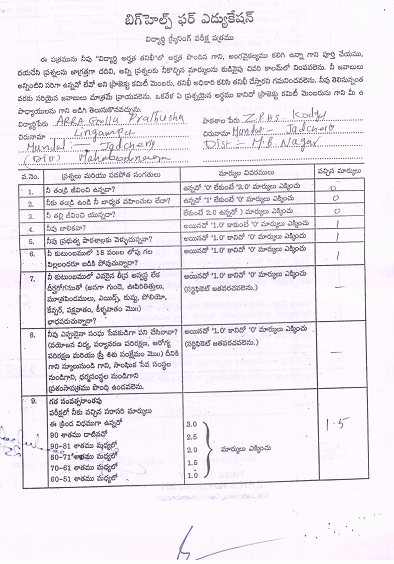 బిగ్‌హెల్ప్ ఫర్ ఎడ్యుకేషన్
విద్యార్థి స్క్రీనింగ్ పరీక్ష పత్రము
ఈ పత్రమును నీవు 'విద్యార్థి అర్హత తనిఖీ'లో అర్హత పొందిన గాని, అంగవైకల్యము కలిగి ఉన్నా గాని పూర్తి చేయుము,
దయచేసి ప్రశ్నలను జాగ్రత్తగా చదివి, అన్ని ప్రశ్నలకు నీకొచ్చిన మార్కులను కుడివైపు చివరి కాలమ్‌లో నింపవలెను. నీ జవాబులు
అన్నింటిని సరిగా ఉన్నవో లేవో అని ప్రాజెక్టు కమిటీ మెంబరు, తనిఖీ అధికారి కలిసి తనిఖీ చేస్తారని గమనించవలెను. నీవు తెలిసినంత
వరకు సరియైన జవాబులు మాత్రమే వ్రాయవలెను. ఒకవేళ ఏ ప్రశ్నయైన అర్థము కానిచో ప్రాజెక్టు కమిటీ మెంబరును గాని మీ ఉ
పాధ్యాయులను గాని అడిగి తెలుసుకొనవచ్చును.
విద్యార్థిపేరు ARRA Golla Prathusha పాఠశాల పేరు Z.P.H.S Kodgl
చిరునామా Lingampa చిరునామా Mandal - Jadcherla
Mandal :- Jadcherla Dist :- M.B. Nagar
(Dist) Mahaboobnagar
వ.నెం. ప్రశ్నలు మరియు వివరిత సంగతులు మార్కుల వివరములు వచ్చిన మార్కులు
1. నీ తండ్రి జీవించి ఉన్నాడా? ఉన్నచో '0' లేకుంటే '2.0' మార్కులు ఎక్కించు 0
2. నీకు తండ్రి ఉండి నీ బాధ్యత వహించుట లేదా? ఉన్నచో '1' లేకుంటే '0' మార్కులు ఎక్కించు 0
3. నీ తల్లి జీవించి యున్నదా? లేకుంటే 2.0 ఉన్నచో 0 మార్కులు ఎక్కించు 0
4. నీవు బాలికవా? అయినచో '1.0' కాకుంటే '0' మార్కులు ఎక్కించు 1
5. నీవు ప్రభుత్వ పాఠశాలకు వెళ్ళుచున్నావా? అయినచో '1.0' కానిచో '0' మార్కులు ఎక్కించు 1
6. నీ కుటుంబములో 18 సం॥ల లోపు గల అయినచో '1.0' కానిచో '0' మార్కులు ఎక్కించు 1
పిల్లలందరూ బడికి పోవుచున్నారా?
7. నీ కుటుంబములో ఎవరైన తీవ్ర అస్వస్థ లేక అయినచో '1.0' కానిచో '0' మార్కులు ఎక్కించు —
దీర్ఘరోగముతో (అనగా గుండె, ఊపిరితిత్తులు, (సర్టిఫికెట్ జతపరచవలెను.)
మూత్రపిండములు, ఎయిడ్స్, కుష్ఠు, పోలియో,
కేన్సర్, పక్షవాతం, కీళ్ళవాతం మొ॥)
బాధపడుచున్నారా?
8. నీవు ఎప్పుడైనా సంఘ సేవకుడిగా పని చేసినావా? అయినచో '1.0' కానిచో '0' మార్కులు ఎక్కించు —
(వయోజన విద్య, పర్యావరణ పరిరక్షణ, ఆరోగ్య (సర్టిఫికెట్ జతపరచవలెను.)
పరిరక్షణ మరియు స్త్రీ శిశు సంక్షేమం మొ॥) దీనికి
గాని స్కూలునుండి గాని, సాంఘిక సేవ సంస్థల
నుండిగాని, ధర్మసంస్థల నుండిగాని
ప్రశంసాపత్రము పొంది ఉండవలెను.
9. గత సంవత్సరాంతపు
పరీక్షలో నీకు వచ్చిన సరాసరి మార్కులు 1.5
ఈ క్రింది విధముగా ఉన్నచో 3.0
90 శాతము దాటినచో 2.5
90-81 శాతము మధ్యలో 2.0 మార్కులు ఎక్కించు
80-71 శాతము మధ్యలో 1.5
70-61 శాతము మధ్యలో 1.0
60-51 శాతము మధ్యలో